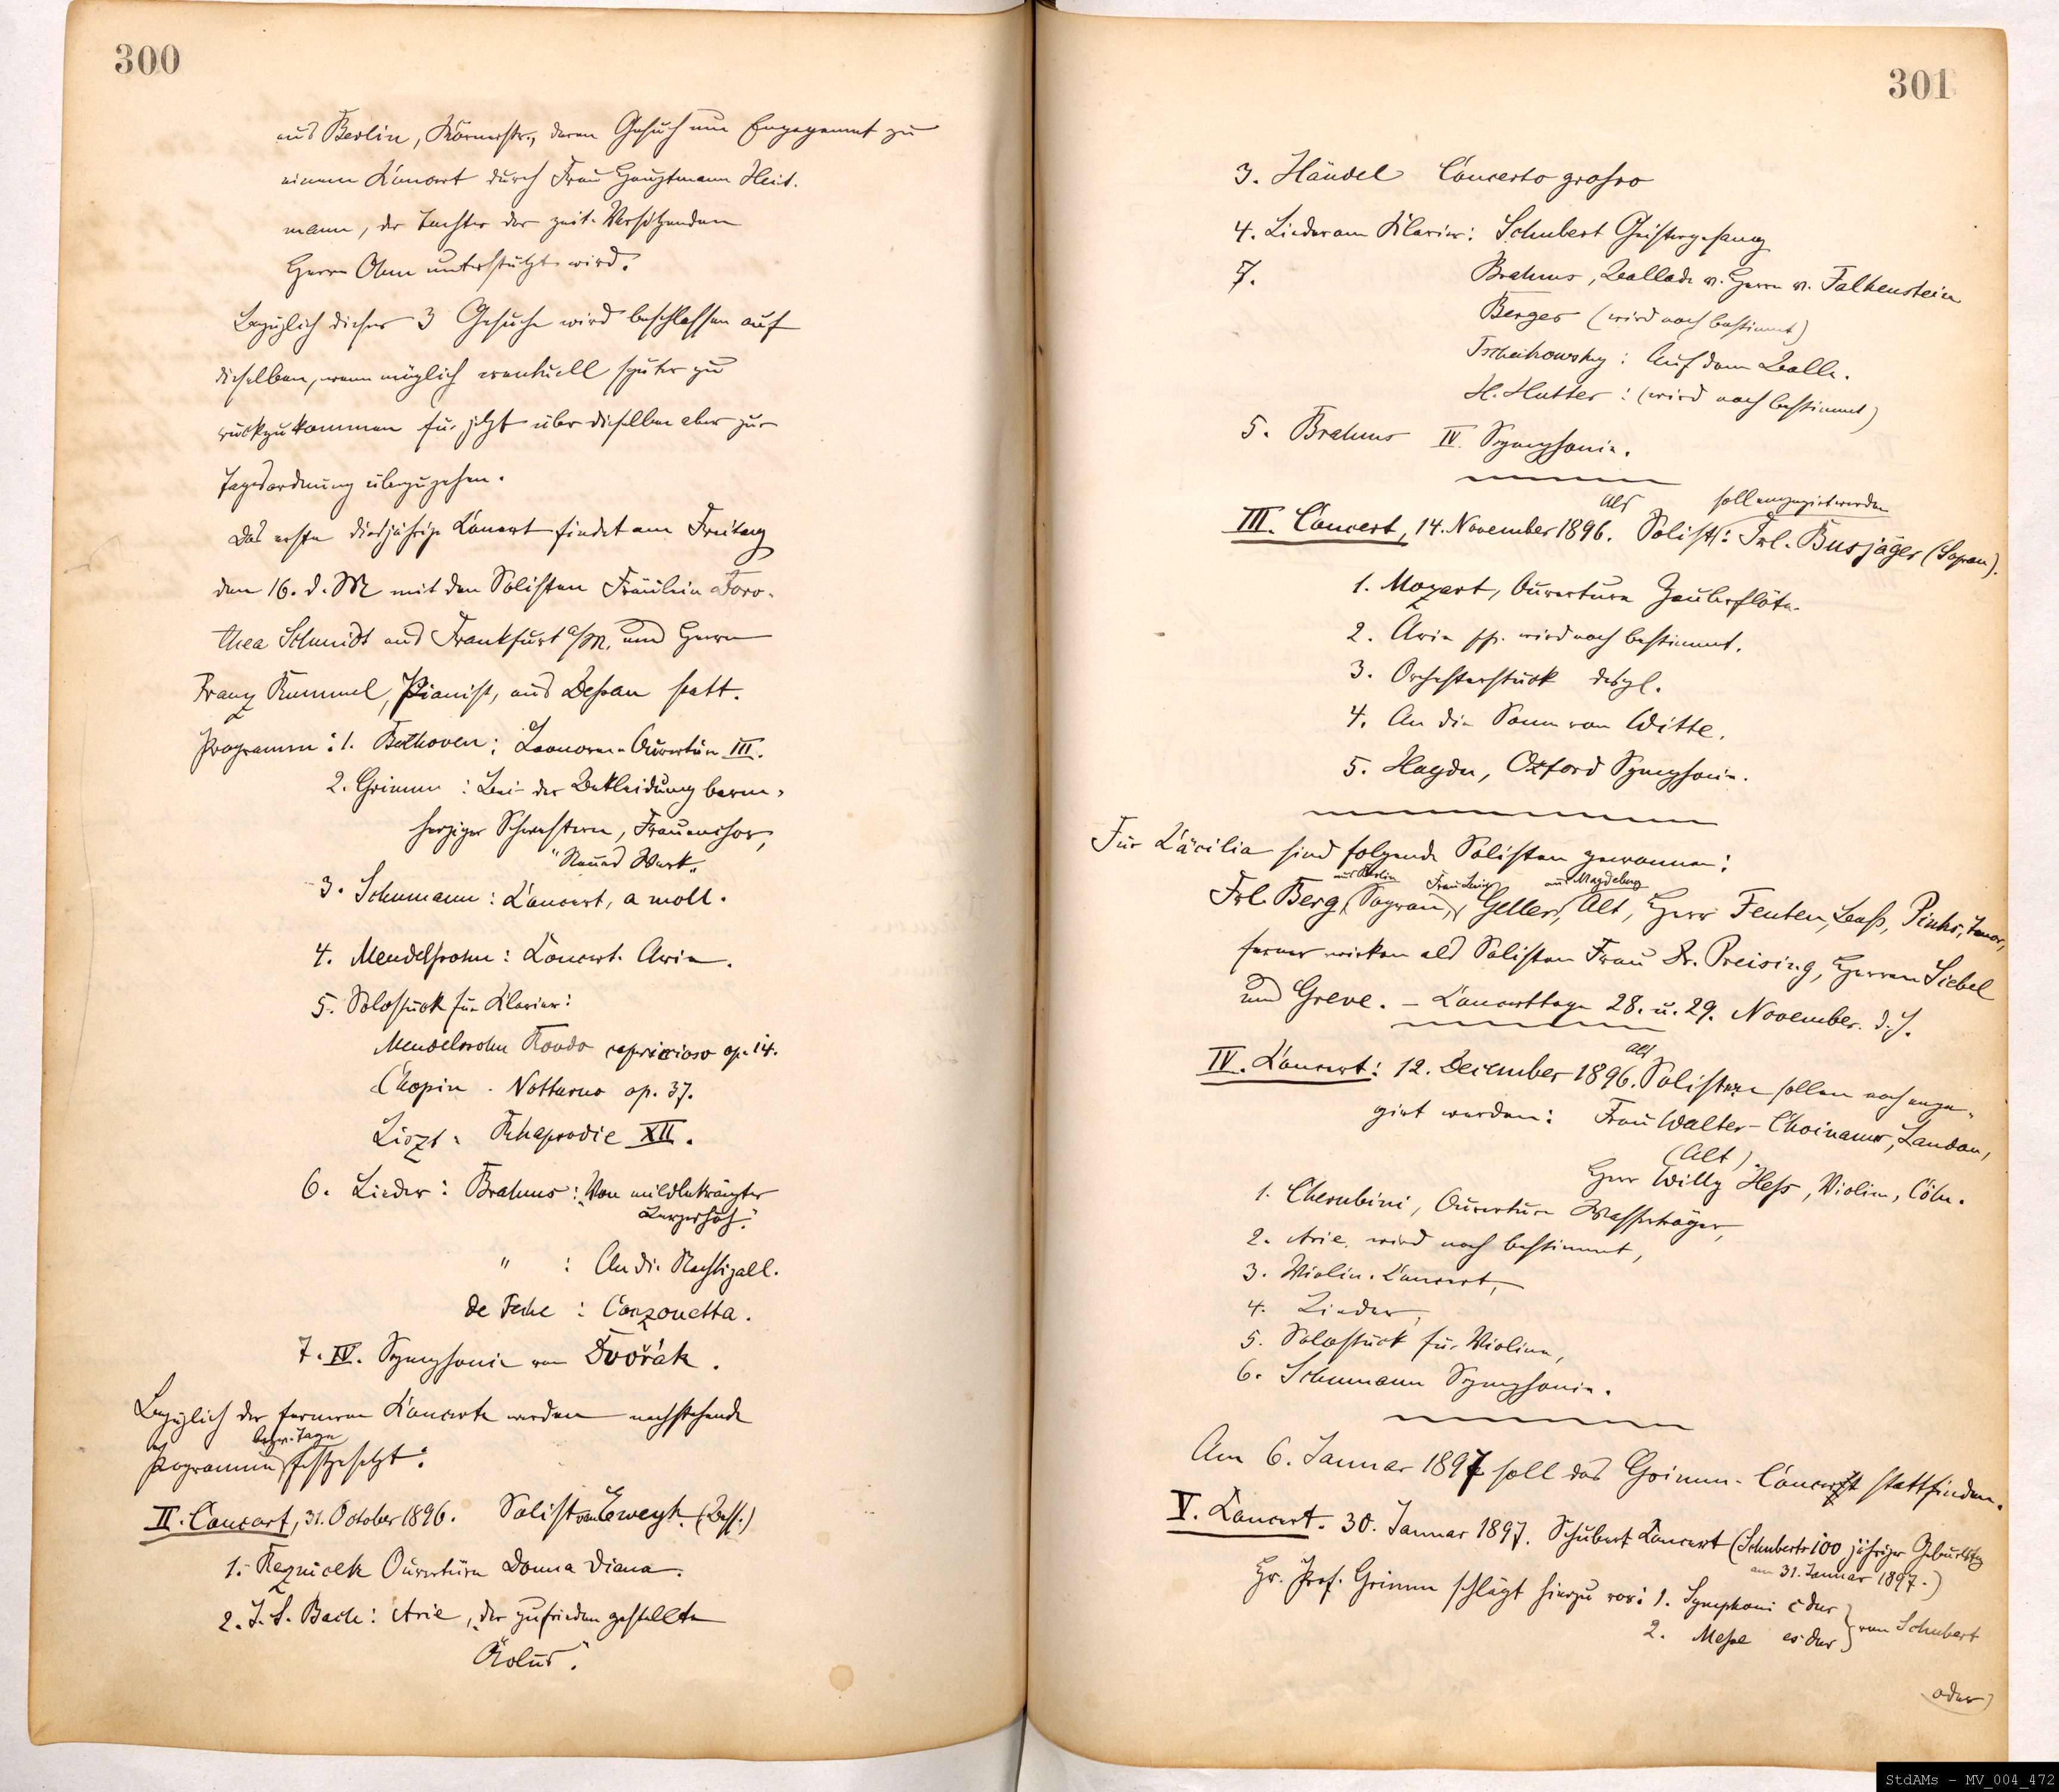 300
aus Berlin, Körnerstr., deren Gesuch um Engagement zu
einem Concert durch Frau Hauptmann Heit-
mann, der Tochter des zeit. Vorsitzenden
Herrn Ohm unterstützt wird.
Bezüglich dieser 3 Gesuche wird beschlossen auf
dieselben, wenn möglich eventuell später zu
rückzukommen für jetzt über dieselben aber zur
Tagesordnung überzugehen.
Das erste diesjährige Concert findet am Freitag
den 16. d. M mit den Solisten Fräulein Doro-
thea Schmidt aus Frankfurt a/M. und Herrn
Franz Rummel, Pianist, aus Dessau statt.
Programm: 1. Bethoven: Leonoren-Ouvertüre III.
2. Grimm: Bei der Bekleidung barm-
herziger Schwestern, Frauenchor,
"Neues Werk"
3. Schumann: Concert, a moll.
4. Mendelssohn: Concert-Arie.
5. Solostück für Klavier:
Mendelssohn Rondo capriccioso op. 14.
Chopin. Notturno op. 37.
Liszt: Rhapsodie XII.
6. Lieder: Brahms: "Von waldbekränzter
Bergeshöh."
" : An die Nachtigall.
de Fesche: Canzonetta.
7. IV. Symphonie von Dvořák.
Bezüglich der ferneren Concerte werden nachstehende
bezw. Tage
Programme festgesetzt:
II. Concert, 31. October 1896. Solist van Eweyk. (Bass.)
1. Reznicek Ouvertüre Donna Diana.
2. J. S. Bach: Arie, "der zufrieden gestellte
Äolus".
301
3. Händel Concerto grosso
4. Lieder am Klavier: Schubert Geistergesang
7. Brahms, Ballade v. Herrn v. Falkenstein
Berger (wird noch bestimmt)
Tschaikowsky: Auf dem Balle.
H. Hutter: (wird noch bestimmt)
5. Brahms IV. Symphonie.
als soll engagirt werden
III. Concert, 14. November 1896. Solist: Frl. Busjäger (Sopran).
1. Mozart, Ouverture Zauberflöte.
2. Arie pp. wird noch bestimmt.
3. Orchesterstück desgl.
4. An die Sonne von Witte.
5. Haydn, Oxford Symphonie.
Für Cäcilia sind folgende Solisten gewonnen:
aus Berlin Frau aus Magdeburg
Frl. Berg, Sopran, Geller, Alt, Herr Fenten, Bass, Pinks, Tenor,
ferner wirken als Solisten Frau Dr. Preising, Herren Siebel
und Greve. – Concerttage 28. u. 29. November d. J.
als
IV. Concert: 12. December 1896. Solisten sollen noch enga-
girt werden: Frau Walter-Choinanus, Landau,
(Alt)
Herr Willy Hess, Violin, Cöln.
1. Cherubini, Ouverture Wasserträger,
2. Arie, wird noch bestimmt,
3. Violin-Concert,
4. Lieder,
5. Solostück für Violine,
6. Schumann Symphonie.
Am 6. Januar 1897 soll das Grimm-Concert stattfinden.
V. Concert. 30. Januar 1897. Schubert Concert (Schuberts 100 jähriger Geburtstag
am 31. Januar 1897.)
Hr. Prof. Grimm schlägt hierzu vor: 1. Symphoni c dur
2. Messe es dur } von Schubert
oder
StdAMs - MV_004_472